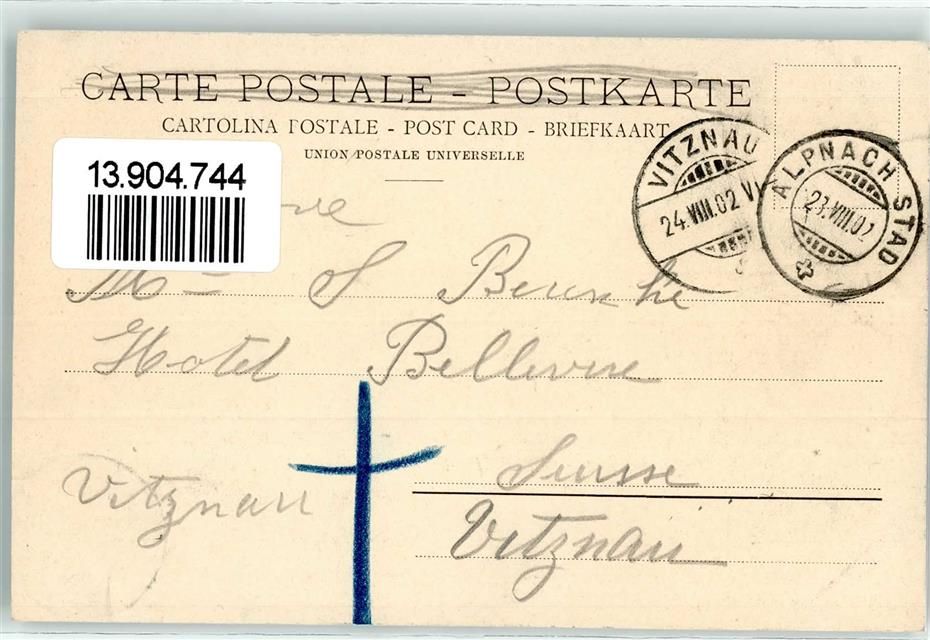 CARTE POSTALE - POSTKARTE
CARTOLINA POSTALE - POST CARD - BRIEFKAART
UNION POSTALE UNIVERSELLE
13.904.744
VITZNAU
24.VIII.02
ALPNACH STAD
23.VIII.02
M S
Hotel Bellevue
Suisse
Vitznau
Vitznau